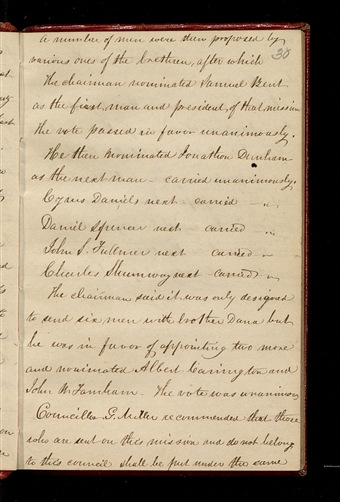 a number of men were then proposed by
various ones of the brethren, after which
30
The chairman nominated Samuel Bent
as the first man and president, of that mission
the vote passed in favor unanimously.
He then nominated Jonathan Dunham
as the next man - carried unanimously.
Cyrus Daniels next - carried - "
Daniel Spencer next - carried - "
John S. Fullmer next - carried - "
Charles Shumway next - carried - "
The chairman said it was only designed
to send six men with brother Dana but
he was in favor of appointing two more
and nominated Albert Carington and
John W. Farnham - The vote was unanimous
Councillor G. Miller recommended that those
who are sent on this mission and do not belong
to this council shall be put under the same